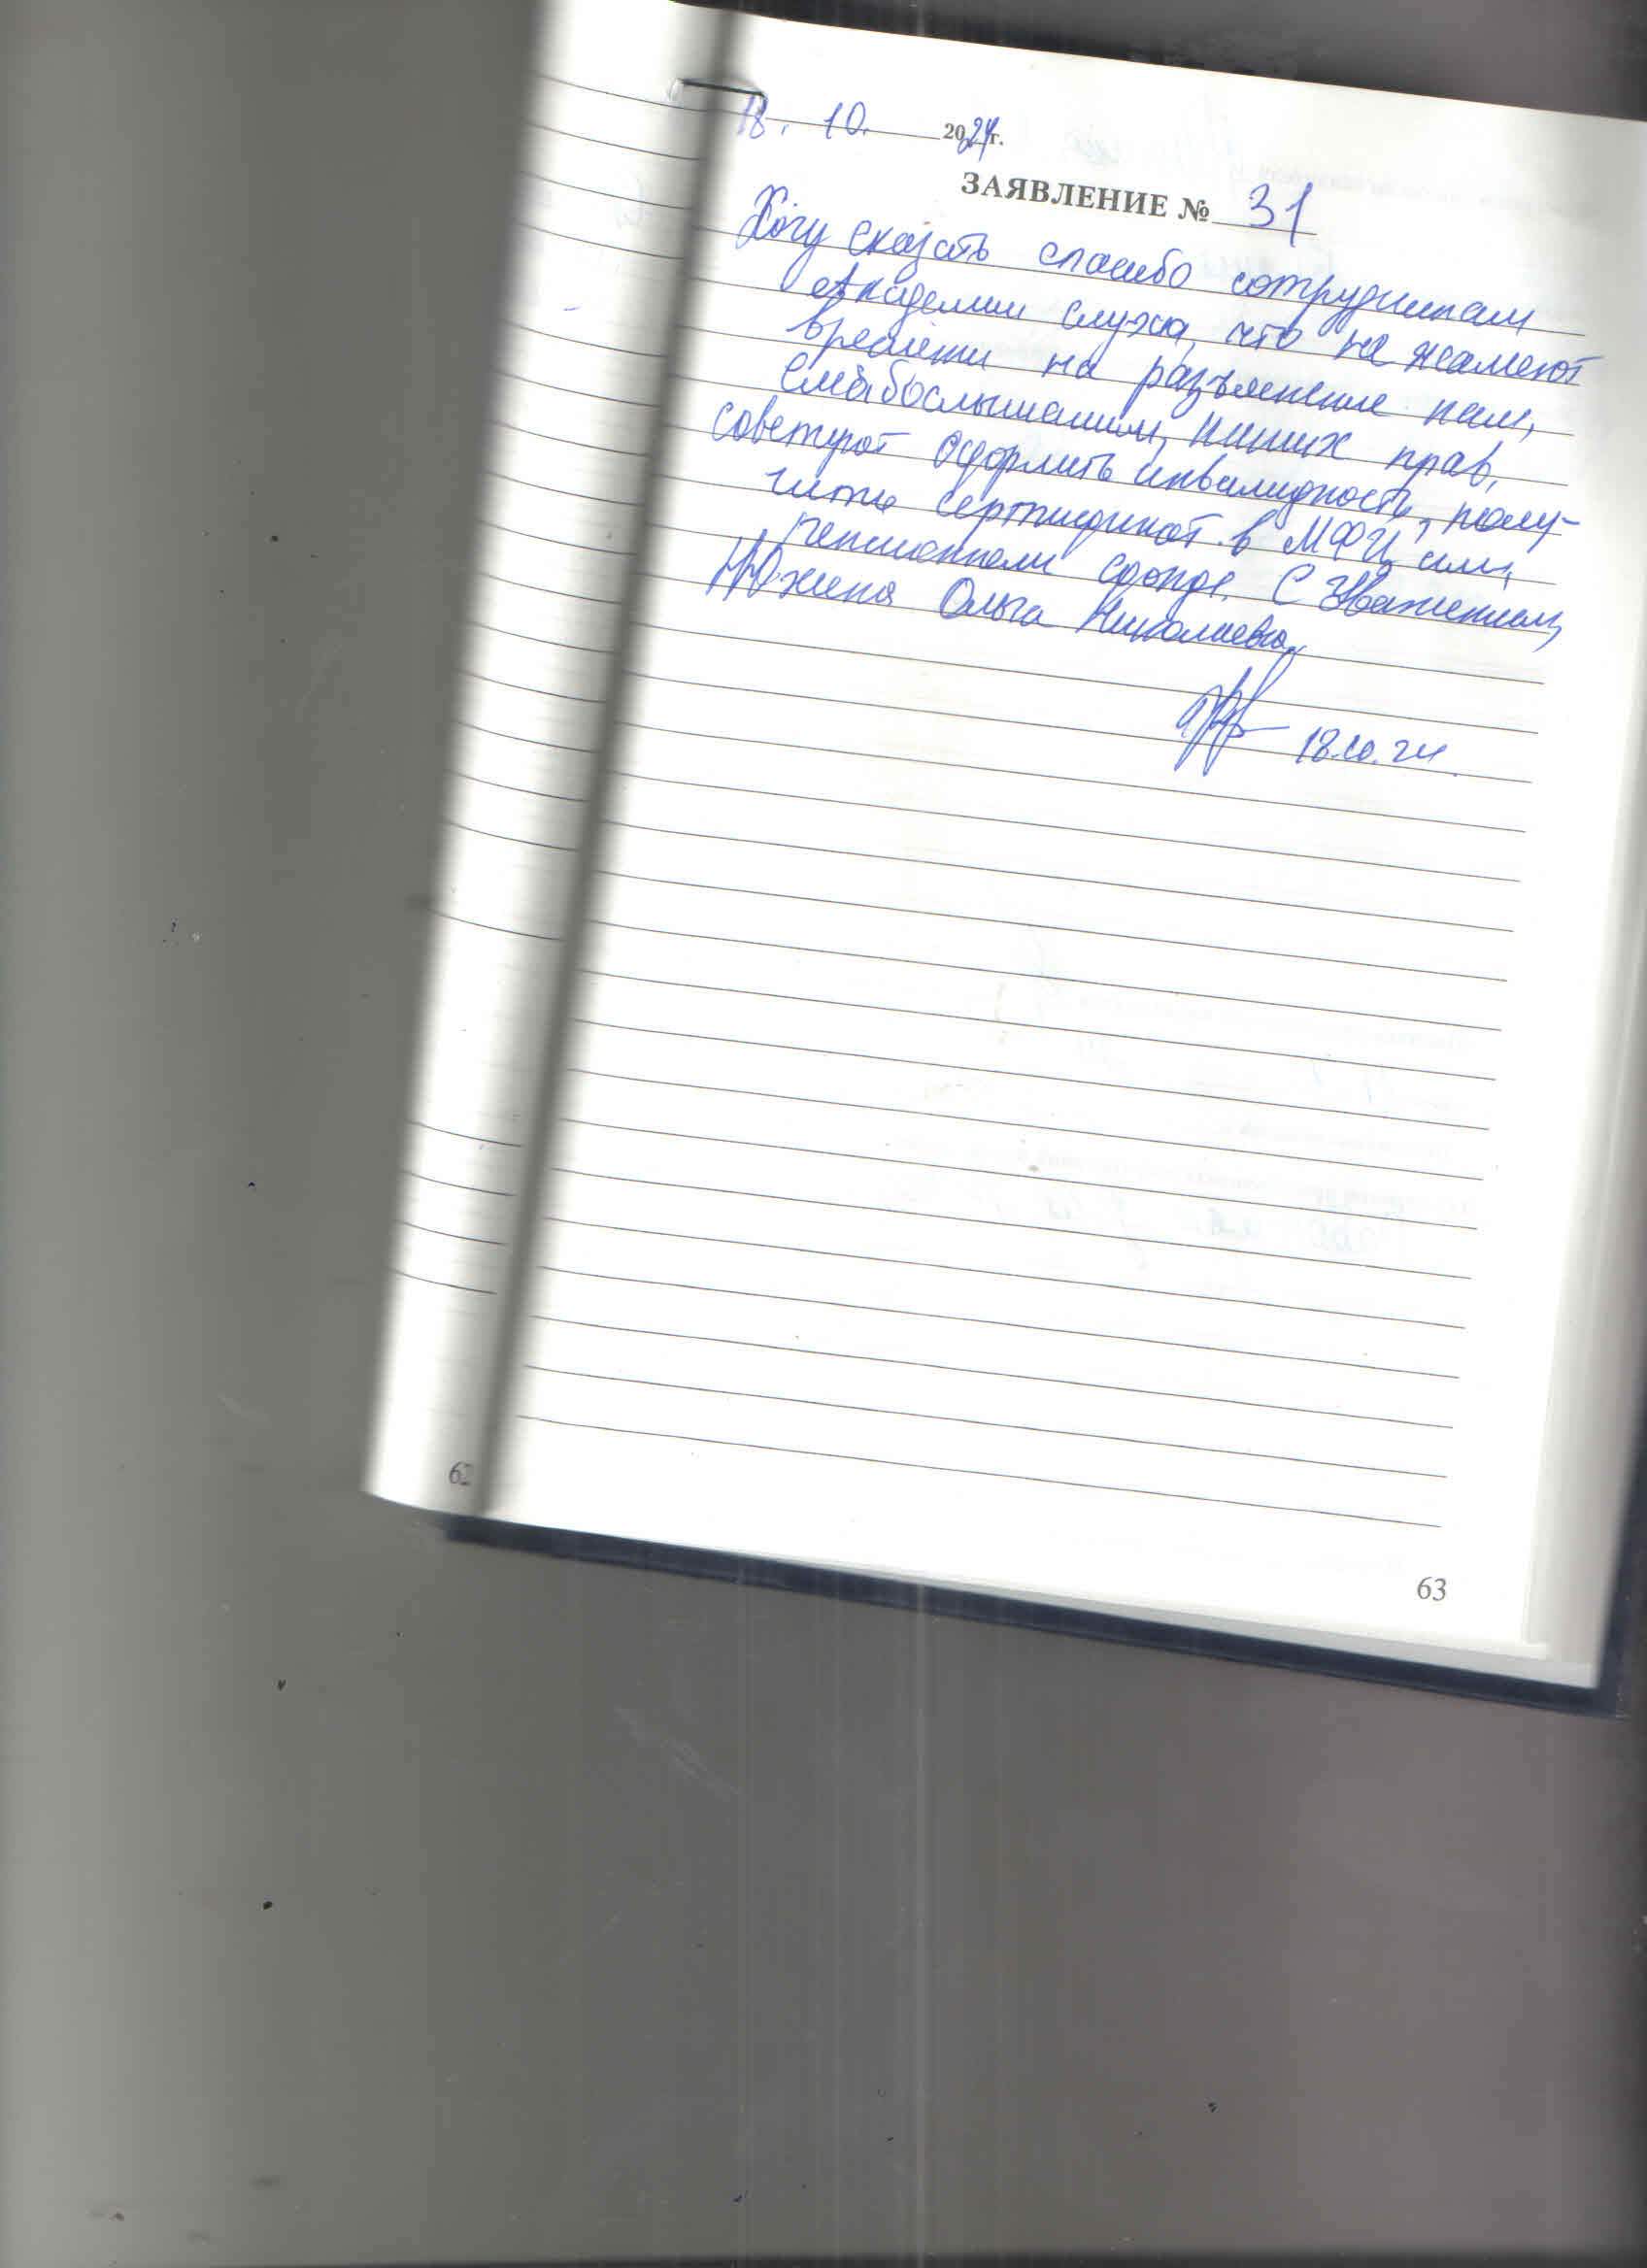 18. 10. 2024г.
ЗАЯВЛЕНИЕ № 31
Хочу сказать спасибо сотрудникам
Академии слуха, что не жалеют
времени на разъяснение нам,
слабослышащим, наших прав,
советуют оформить инвалидность, полу-
чить сертификат в МФЦ или,
пенсионном фонде. С Уважением,
Ольга Николаевна
18.10.24
62
63